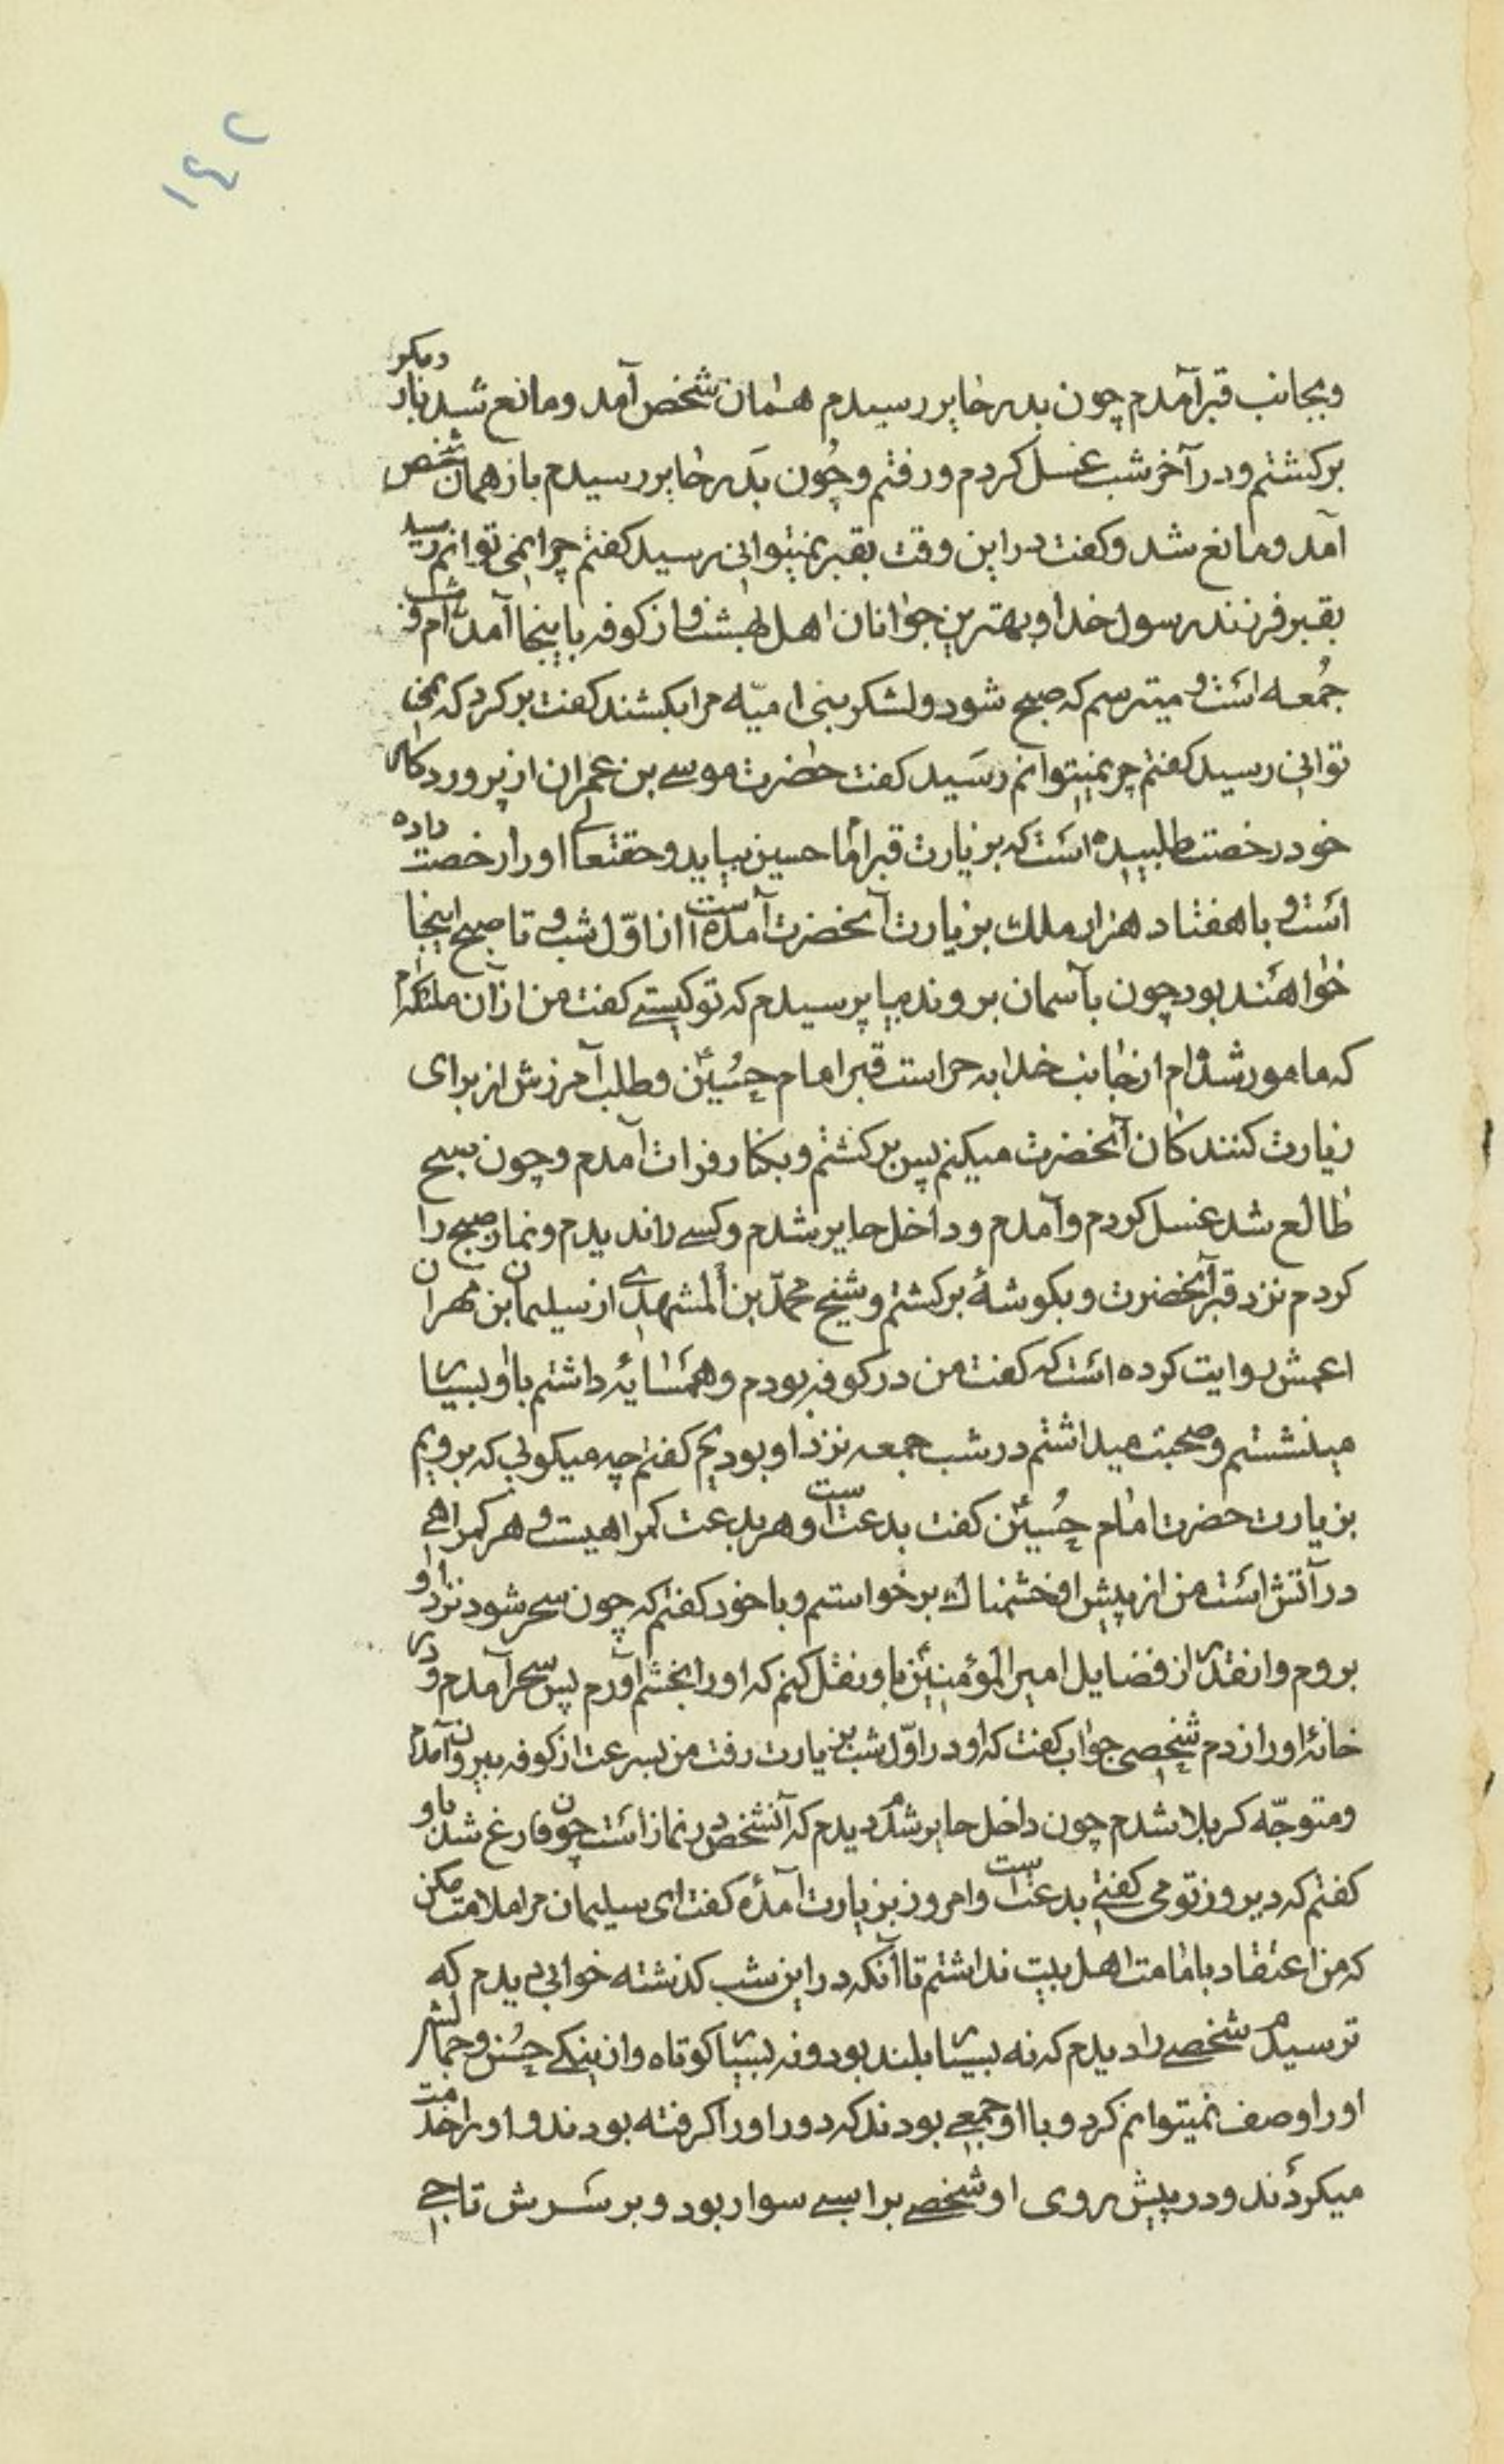 ١٤٢
وبجانب قبر آمدم چون بدر حایر رسیدم همان شخص آمد و مانع شد بار دیکر
برکشتم و در آخر شب غسل کردم و رفتم و چون بدر حایر رسیدم باز همان شخص
آمد و مانع شد و کفت در این وقت بقبر نمیتوانی رسید کفتم چرا نمی توانم رسید
بقبر فرزند رسول خدا و بهترین جوانان اهل بهشت و از کوفه باینجا آمده‌ام و شب
جمعه است و میترسم که صبح شود و لشکر بنی امیّه مرا بکشند کفت برکرد که نمی
توانی رسید کفتم چر نمیتوانم رسید کفت حضرت موسے بن عمران از پروردکار
خود رخصت طلبیده است که بزیارت قبر امام حسین بیاید و حقتعالے او را رخصت داده
است و با هفتاد هزار ملك بزیارت آنحضرت آمده است از اوّل شب و تا صبح اینجا
خواهند بود چون بآسمان بروند بیا پرسیدم که تو کیستے کفت من از آن ملائکه‌ام
که مامور شده‌ام از جانب خدا به حراست قبر امام حسینؑ و طلب آمرزش از برای
زیارت کنندکان آنحضرت میکنم پس برکشتم و بکنار فرات آمدم و چون صبح
طالع شد غسل کردم و آمدم و داخل حایر شدم و کسے را ندیدم و نماز صبح را
کردم نزد قبر آنحضرت و بکوشهٔ برکشتم و شیخ محمّد بن المشهدے از سلیمان بن مهران
اعمش روایت کرده است که کفت من در کوفه بودم و همسایهٔ داشتم با او بسیار
مینشستم و صحبت میداشتم در شب جمعه نزد او بودیم کفتم چه میکوئی که برویم
بزیارت حضرت امام حسینؑ کفت بدعت است و هر بدعت کمراهیست و هر کمراهے
در آتش است من از پیش او خشمناك برخواستم و با خود کفتم که چون سحر شود نزد او
بروم و انقدر از فضایل امیرالمؤمنینؑ باو نقل کنم که او را بخشم آورم پس سحر آمدم و در
خانهٔ او را زدم شخصی جواب کفت که او در اوّل شب بزیارت رفت من بسرعت از کوفه بیرون آمدم
و متوجّه کربلا شدم چون داخل حایر شدم دیدم که آنشخص در نماز است چون فارغ شد باو
کفتم که دیروز تو می کفتے بدعت است و امروز بزیارت آمدهٔ کفت ای سلیمان مرا ملامت مکن
که من اعتقاد بامامت اهل بیت نداشتم تا آنکه در این شب کذشته خوابی دیدم که
ترسیدم شخصے را دیدم که نه بسیار بلند بود و نه بسیار کوتاه و از نیکے حسن و جمالش
او را وصف نمیتوانم کرد و با او جمعے بودند که دور او را کرفته بودند و او را خدمت
میکردند و در پیش روی او شخصے بر اسبے سوار بود و بر سرش تاجے